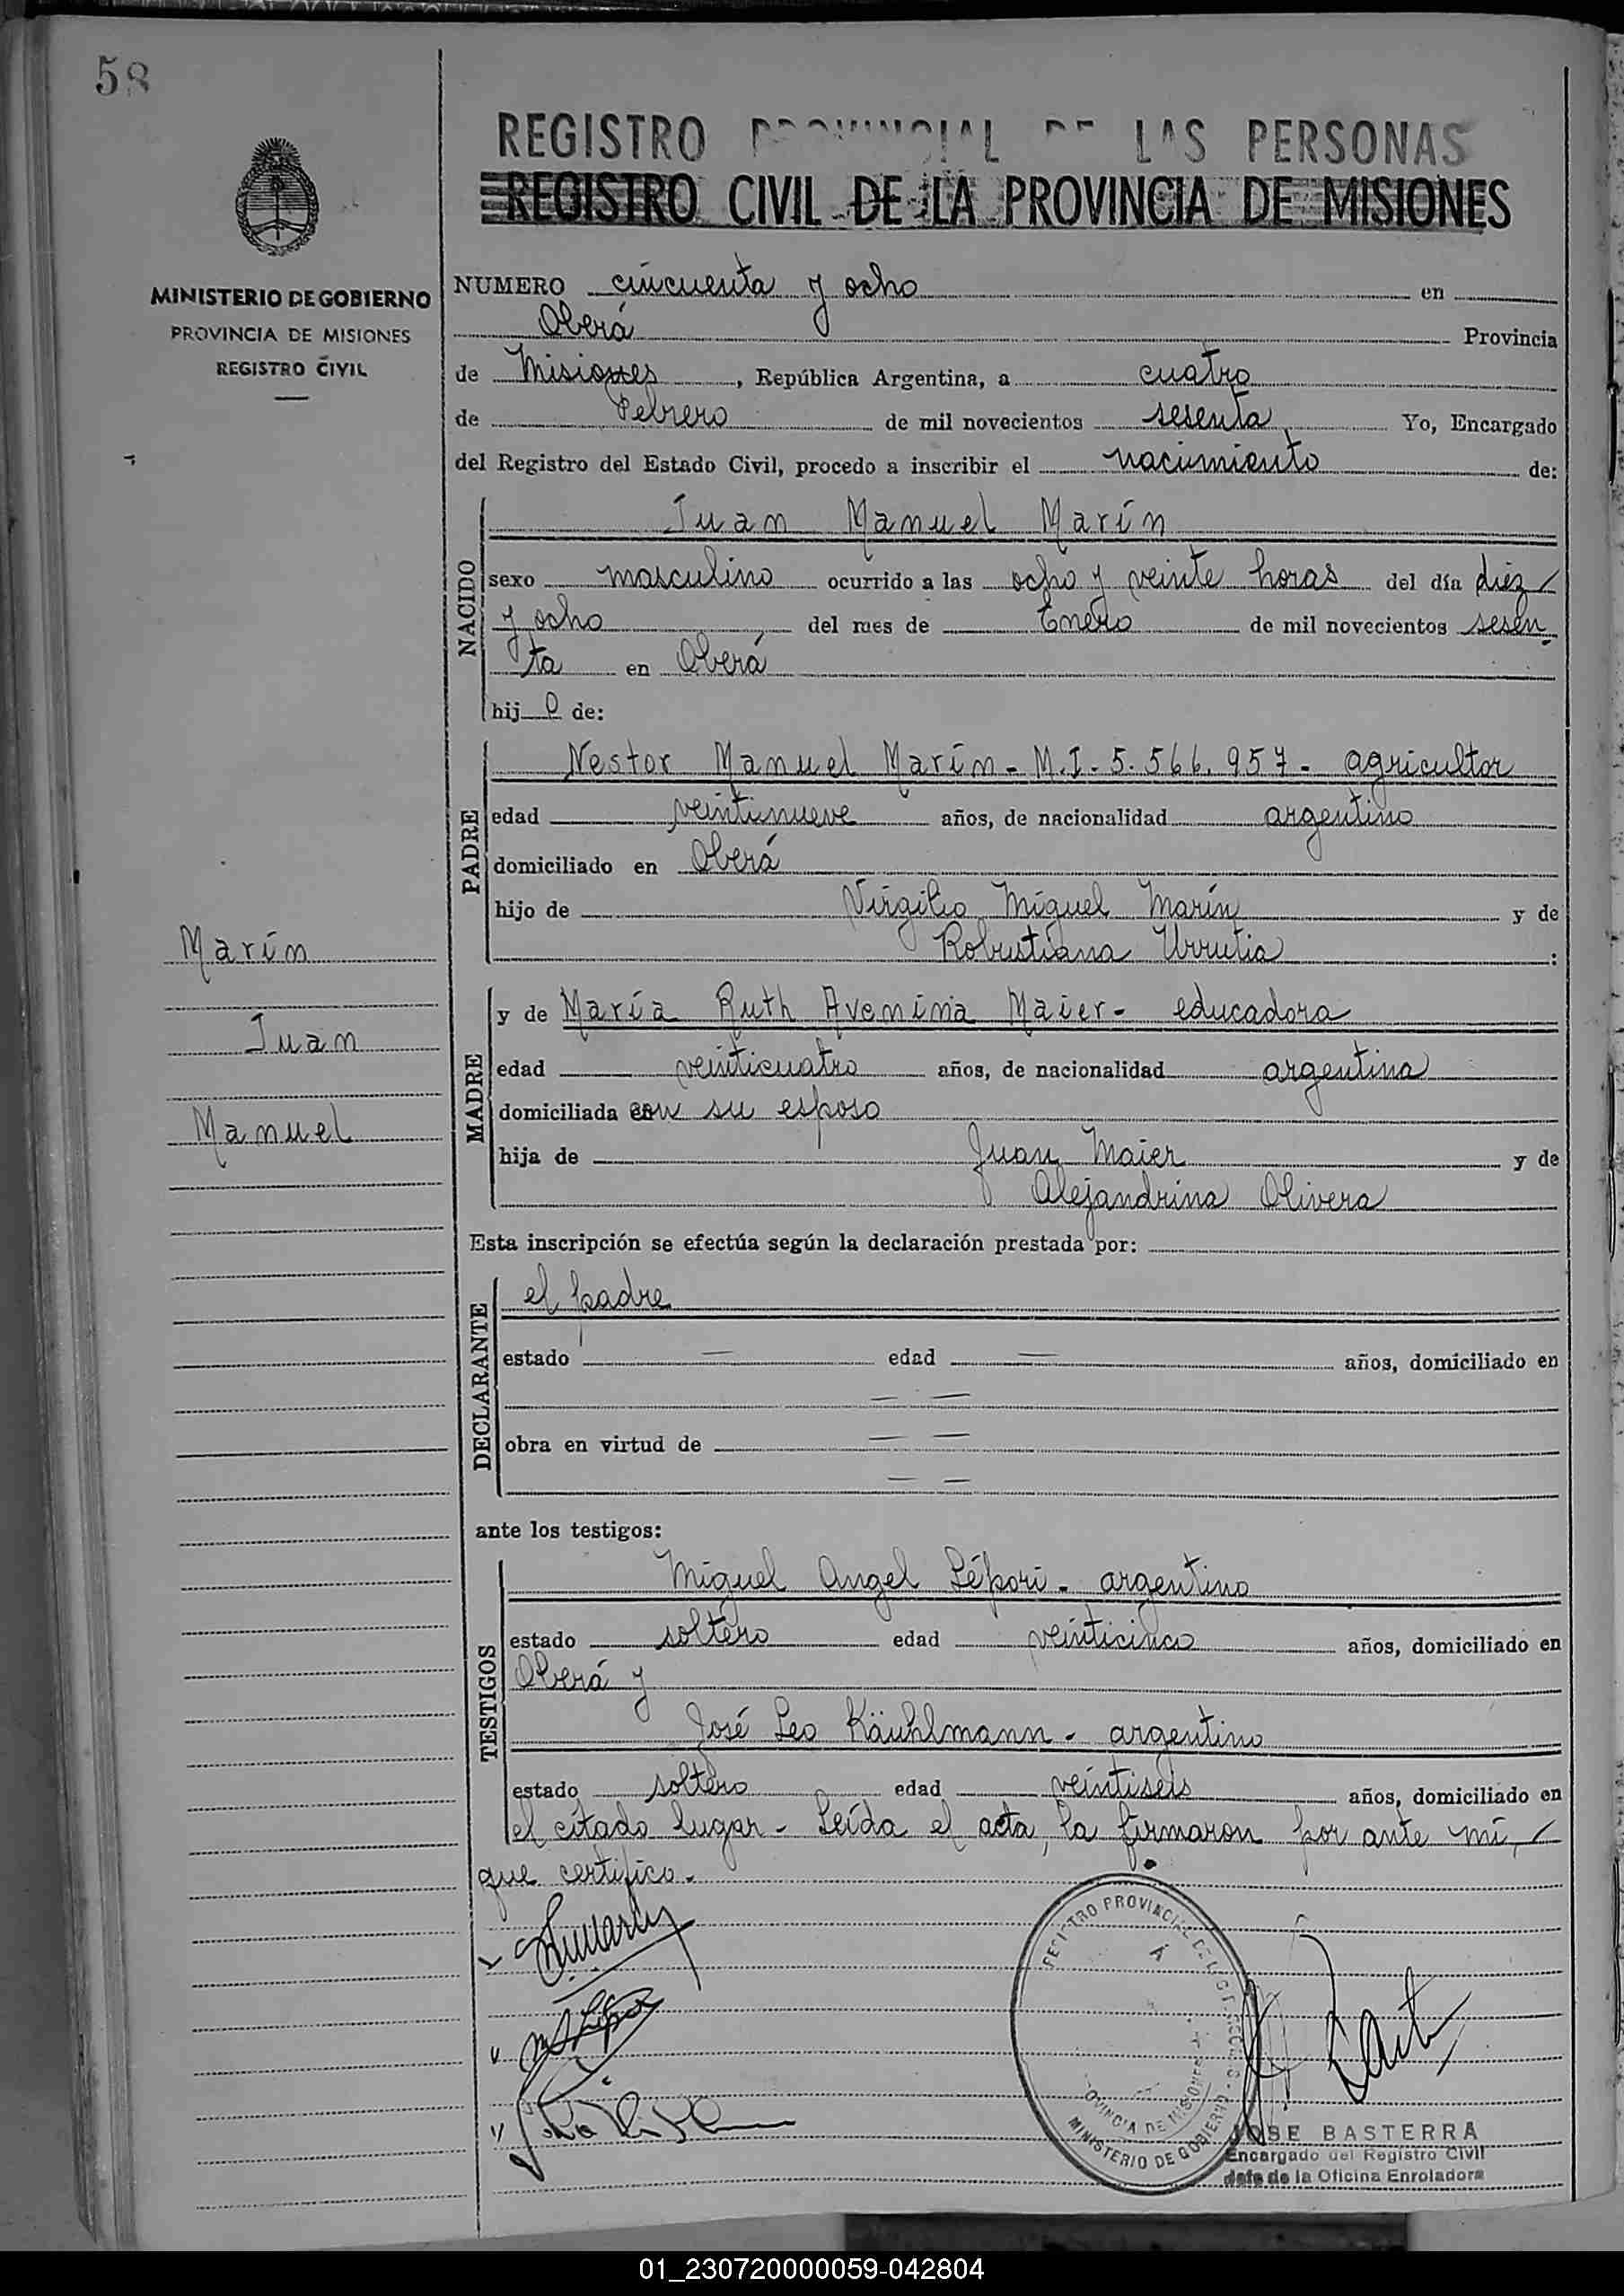 58
REGISTRO PROVINCIAL DE LAS PERSONAS
REGISTRO CIVIL DE LA PROVINCIA DE MISIONES
MINISTERIO DE GOBIERNO
PROVINCIA DE MISIONES
REGISTRO CIVIL
NUMERO cincuenta y ocho en
Oberá Provincia
de Misiones, República Argentina, a cuatro
de Febrero de mil novecientos sesenta Yo, Encargado
del Registro del Estado Civil, procedo a inscribir el nacimiento de:
NACIDO
Juan Manuel Marín
sexo masculino ocurrido a las ocho y veinte horas del día diez
y ocho del mes de Enero de mil novecientos sesen
ta en Oberá
hij o de:
PADRE
Nestor Manuel Marín - M.I. 5.566.957 - agricultor
edad veintinueve años, de nacionalidad argentino
domiciliado en Oberá
hijo de Virgilio Miguel Marín y de
Robustiana Urrutia :
MADRE
y de María Ruth Avenina Maier - educadora
edad veinticuatro años, de nacionalidad argentina
domiciliada con su esposo
hija de Juan Maier y de
Alejandrina Olivera
Marín
Juan
Manuel
Esta inscripción se efectúa según la declaración prestada por:
DECLARANTE
el padre
estado — edad — años, domiciliado en
— —
obra en virtud de — —
— —
ante los testigos:
TESTIGOS
Miguel Angel Lépori - argentino
estado soltero edad veinticinco años, domiciliado en
Oberá y
José Leo Käuhlmann - argentino
estado soltero edad veintiseis años, domiciliado en
el citado lugar - Leída el acta, la firmaron por ante mí,
que certifico.
REGISTRO PROVINCIAL DE LAS PERSONAS
PROVINCIA DE MISIONES
MINISTERIO DE GOBIERNO
JOSE BASTERRA
Encargado del Registro Civil
Jefe de la Oficina Enroladora
01_230720000059-042804